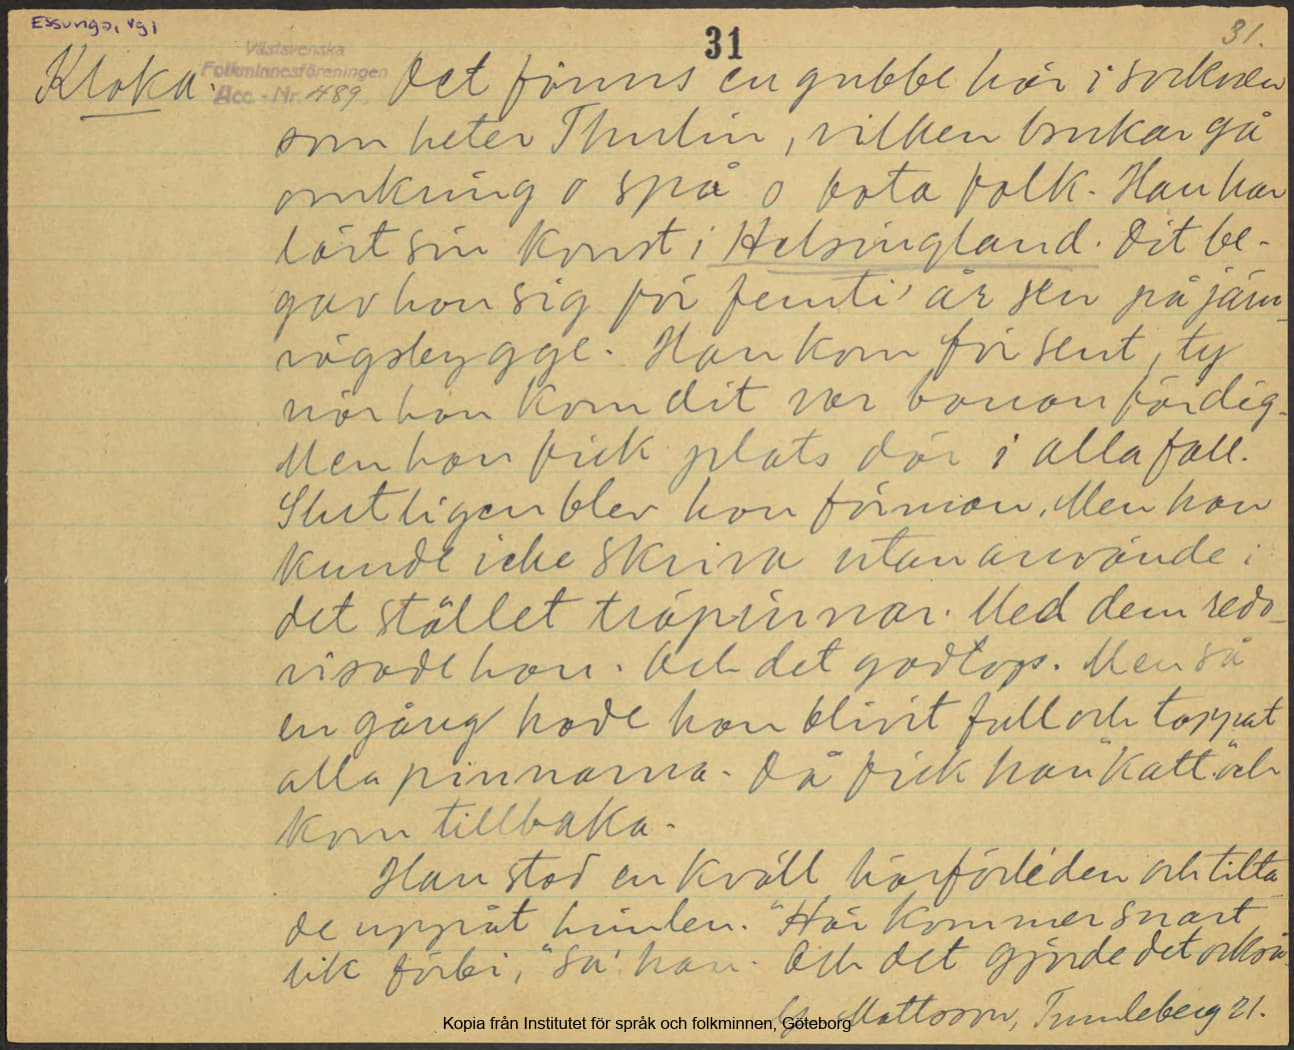 Essunga, Vg
31
31.
Västsvenska
Folkminnesföreningen
Acc - Nr. 489
Kloka. Det finns en gubbe här i socknen
som heter Thulin, vilken brukar gå
omkring o spå o bota folk. Han har
lärt sin konst i Helsingland. Dit be-
gav han sig för femti' år sen på järn-
vägsbygge. Han kom för sent, ty
när han kom dit var banan färdig.
Men han fick plats där i alla fall.
Slutligen blev han förman. Men han
kunde icke skriva utan använde i
det stället träpinnar. Med dem redo-
visade han. Och det godtogs. Men så
en gång hade han blivit full och tappat
alla pinnarna. Då fick han "katt" och
kom tillbaka.
Han stod en kväll härförleden och titta
de uppåt himlen. "Här kommer snart
lik förbi," sa' han. Och det gjorde det också.
Mattsson, 21.
Kopia från Institutet för språk och folkminnen, Göteborg